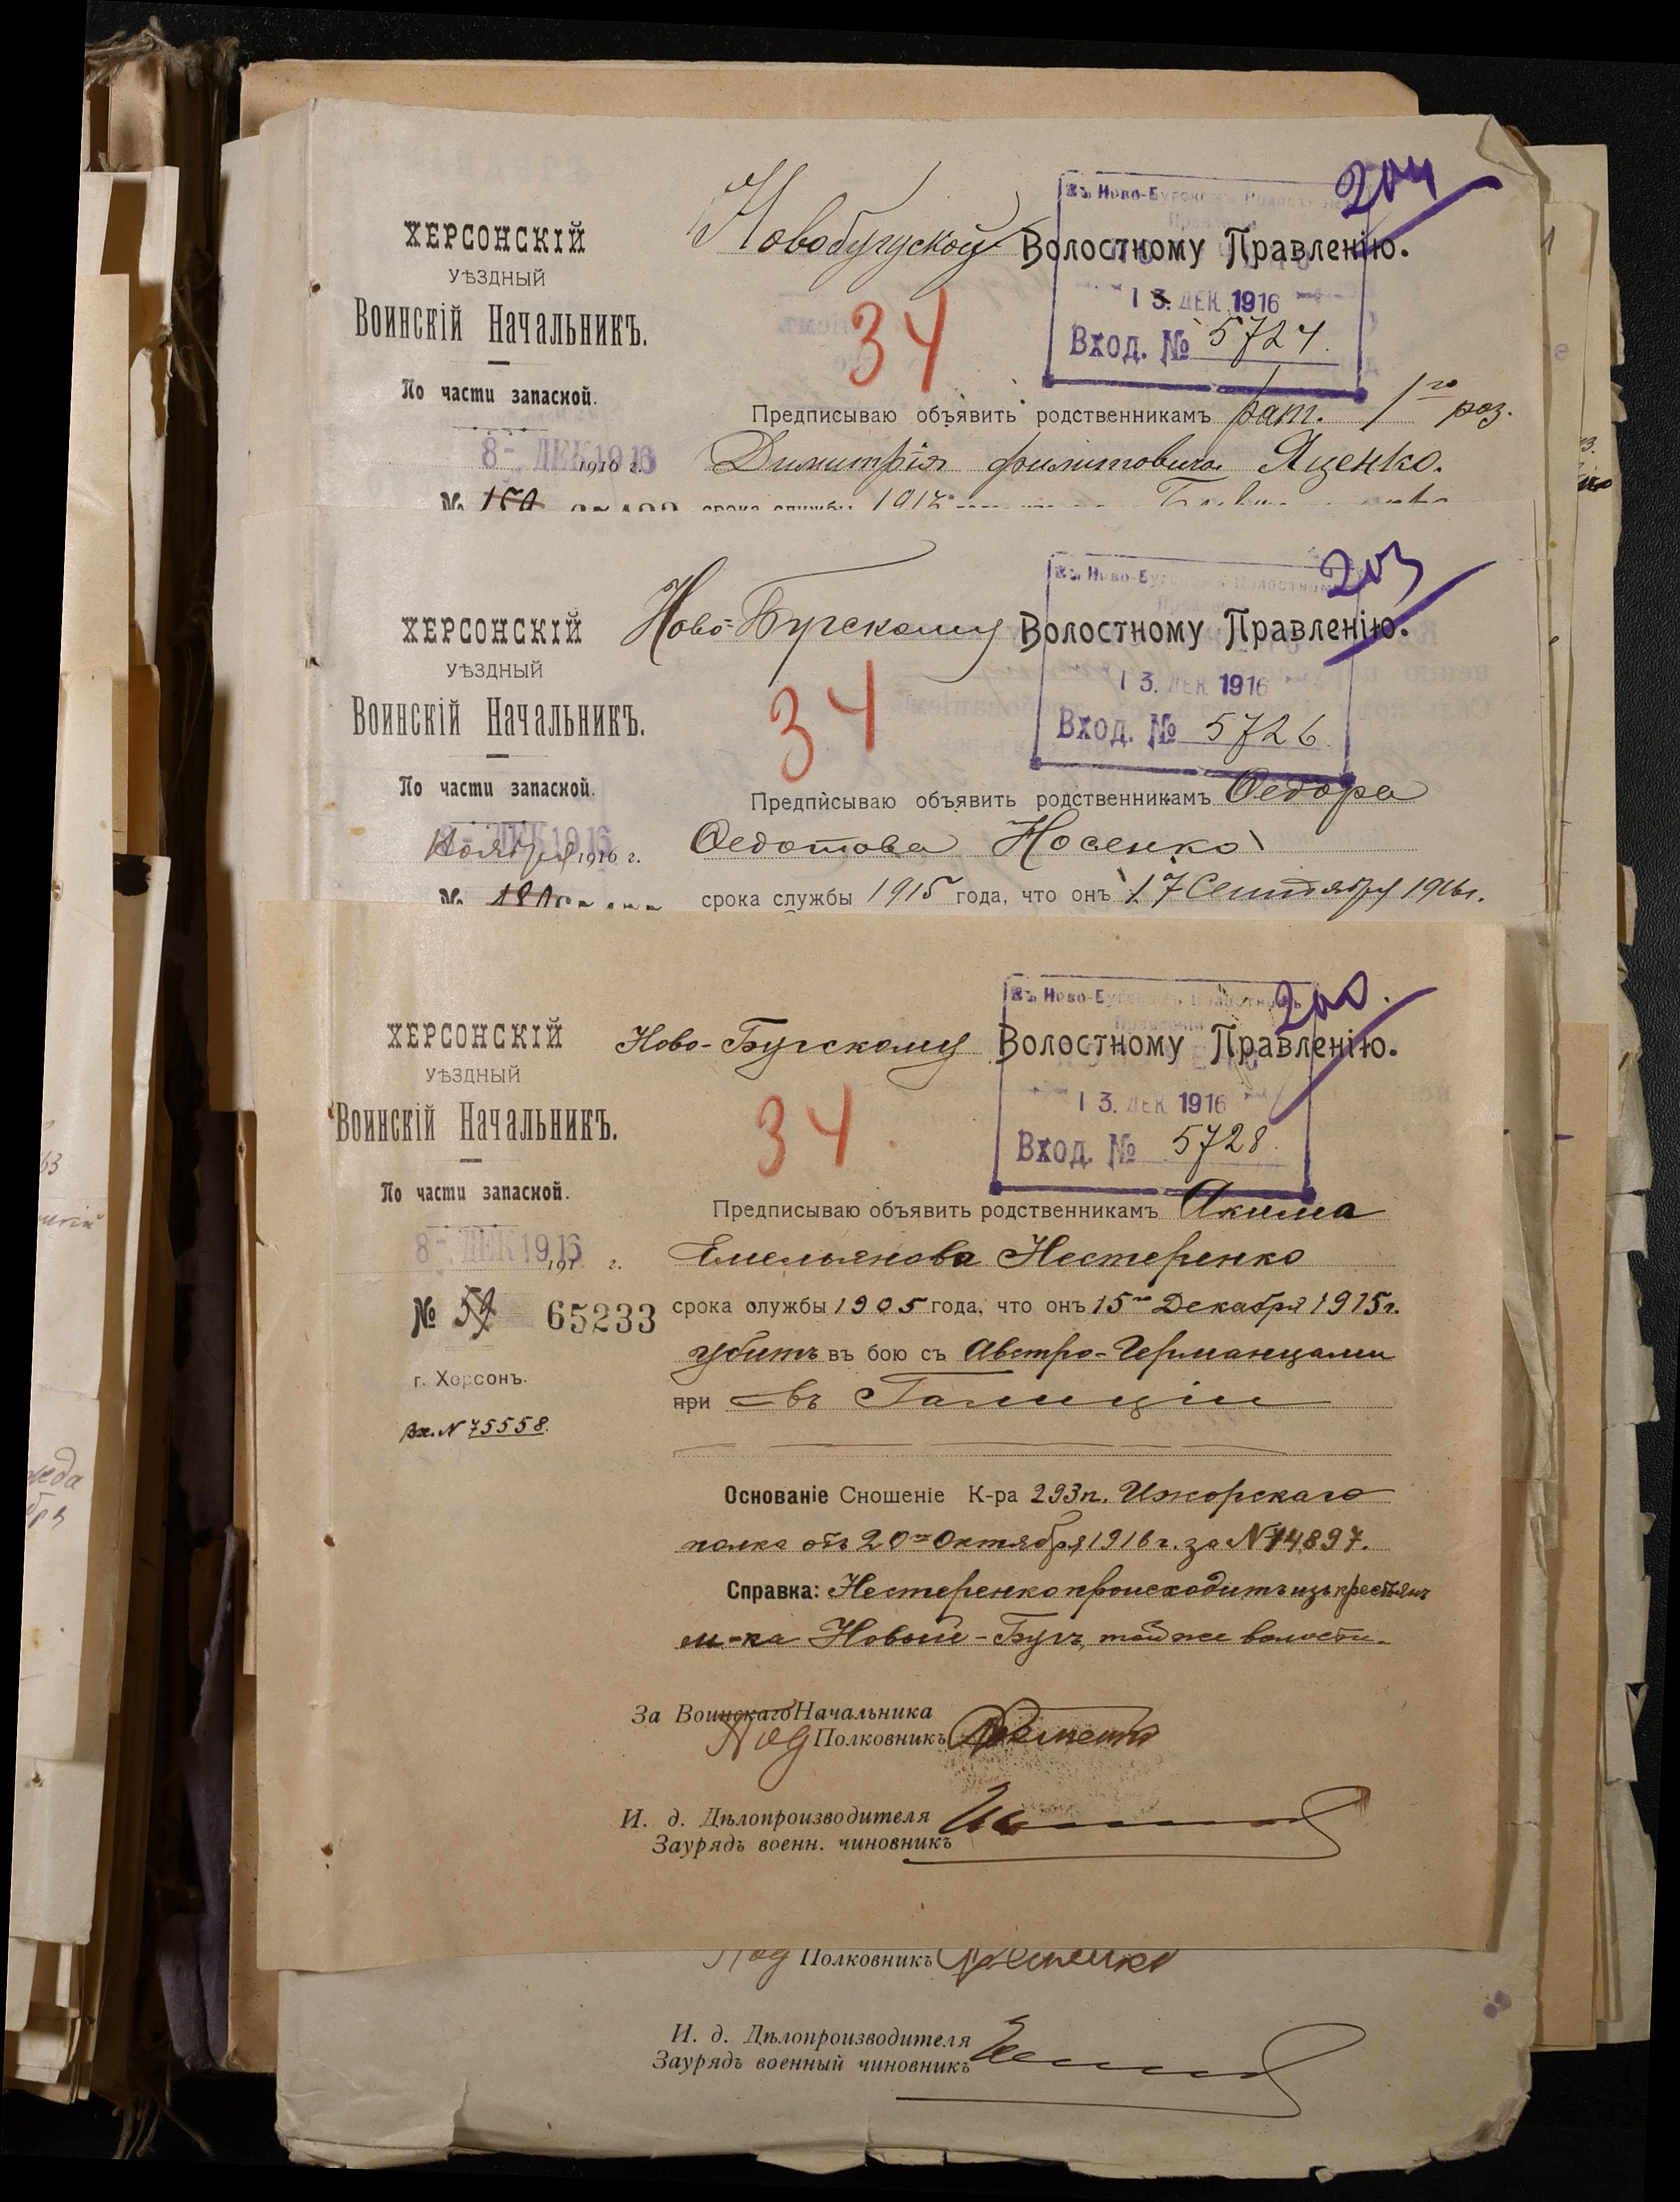 204
Въ Ново-Бугском Волостном
Новобугуской Волостному Правленію.
ХЕРСОНСКІЙ
УѢЗДНЫЙ
ВОИНСКІЙ НАЧАЛЬНИКЪ.
По части запасной.
8- ДЕК 1916
1916 г.
34
13. ДЕК 1916
Вход. № 5724.
Предписываю объявить родственникамъ рат. 1го раз.
Димитрія Филитовича Яценко.
№ 159
срока службы 1917
203
Въ Ново-Бугском Волостном
Ново-Бугскому Волостному Правленію.
ХЕРСОНСКІЙ
УѢЗДНЫЙ
ВОИНСКІЙ НАЧАЛЬНИКЪ.
По части запасной.
8- ДЕК 1916
Ноября 1916 г.
34
13. ДЕК 1916
Вход. № 5726
Предписываю объявить родственникамъ Ѳедора
Ѳедотова Носенко
№ 180
срока службы 1915 года, что онъ 17 Сентября 1916г.
200
Въ Ново-Бугском Волостномъ
Правленіи
Ново-Бугскому Волостному Правленію.
ХЕРСОНСКІЙ
УѢЗДНЫЙ
ВОИНСКІЙ НАЧАЛЬНИКЪ.
По части запасной.
8- ДЕК 1916
191 г.
№ 59 65233
г. Херсонъ.
Вх. N 75558.
34.
13. ДЕК 1916
Вход. № 5728.
Предписываю объявить родственникамъ Акима
Емельянова Нестеренко
срока службы 1905 года, что онъ 15го Декабря 1915г.
убитъ въ бою съ Австро-Германцами
при въ Галиціи
Основаніе Сношеніе К-ра 293п. Ижорскаго
полка отъ 20го Октября 1916г. за N 14897.
Справка: Нестеренко происходитъ изъ крестьянъ
м-ка Новый-Бугъ, той же волости.
За Воинскаго Начальника
Под Полковникъ
И. д. Дѣлопроизводителя
Заурядъ военн. чиновникъ
Под Полковникъ
И. д. Дѣлопроизводителя
Заурядъ военный чиновникъ